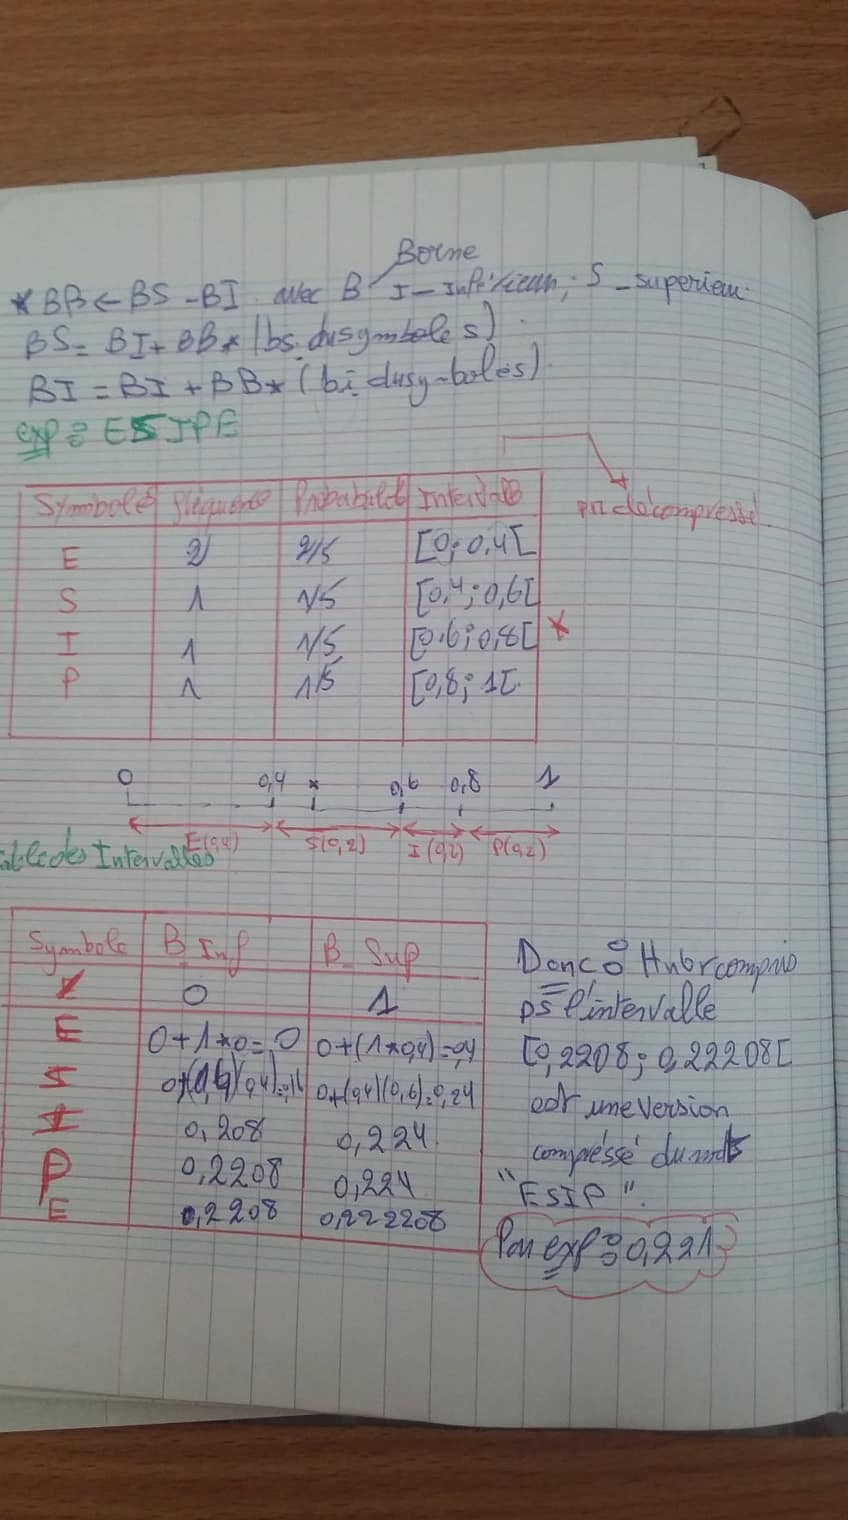 Borne
* BB ← BS - BI avec B I - Inférieur; S - superieur.
BS = BI + BB * (bs du symbole s).
BI = BI + BB * (bi du symboles).
exp: ESIPE
Symboles fréquence Probabilité Intervalle
E 2 2/5 [0; 0,4[
S 1 1/5 [0,4; 0,6[
I 1 1/5 [0,6; 0,8[ *
P 1 1/5 [0,8; 1[.
décompressé
0 0,4 * 0,6 0,8 1
E(0,4) S(0,2) I(0,2) P(0,2)
des Intervalles
Symbole B_Inf B_Sup
0 1
E 0+1*0=0 0+(1*0,4)=0,4
S 0+(0,4)(0,6)=0,24
I 0,208 0,224
P 0,2208 0,224
E 0,2208 0,222208
Donc: compris
ds l'intervalle
[0,2208; 0,22208[
est une version
compréssé du mots
"ESIP".
Par exp: 0,221